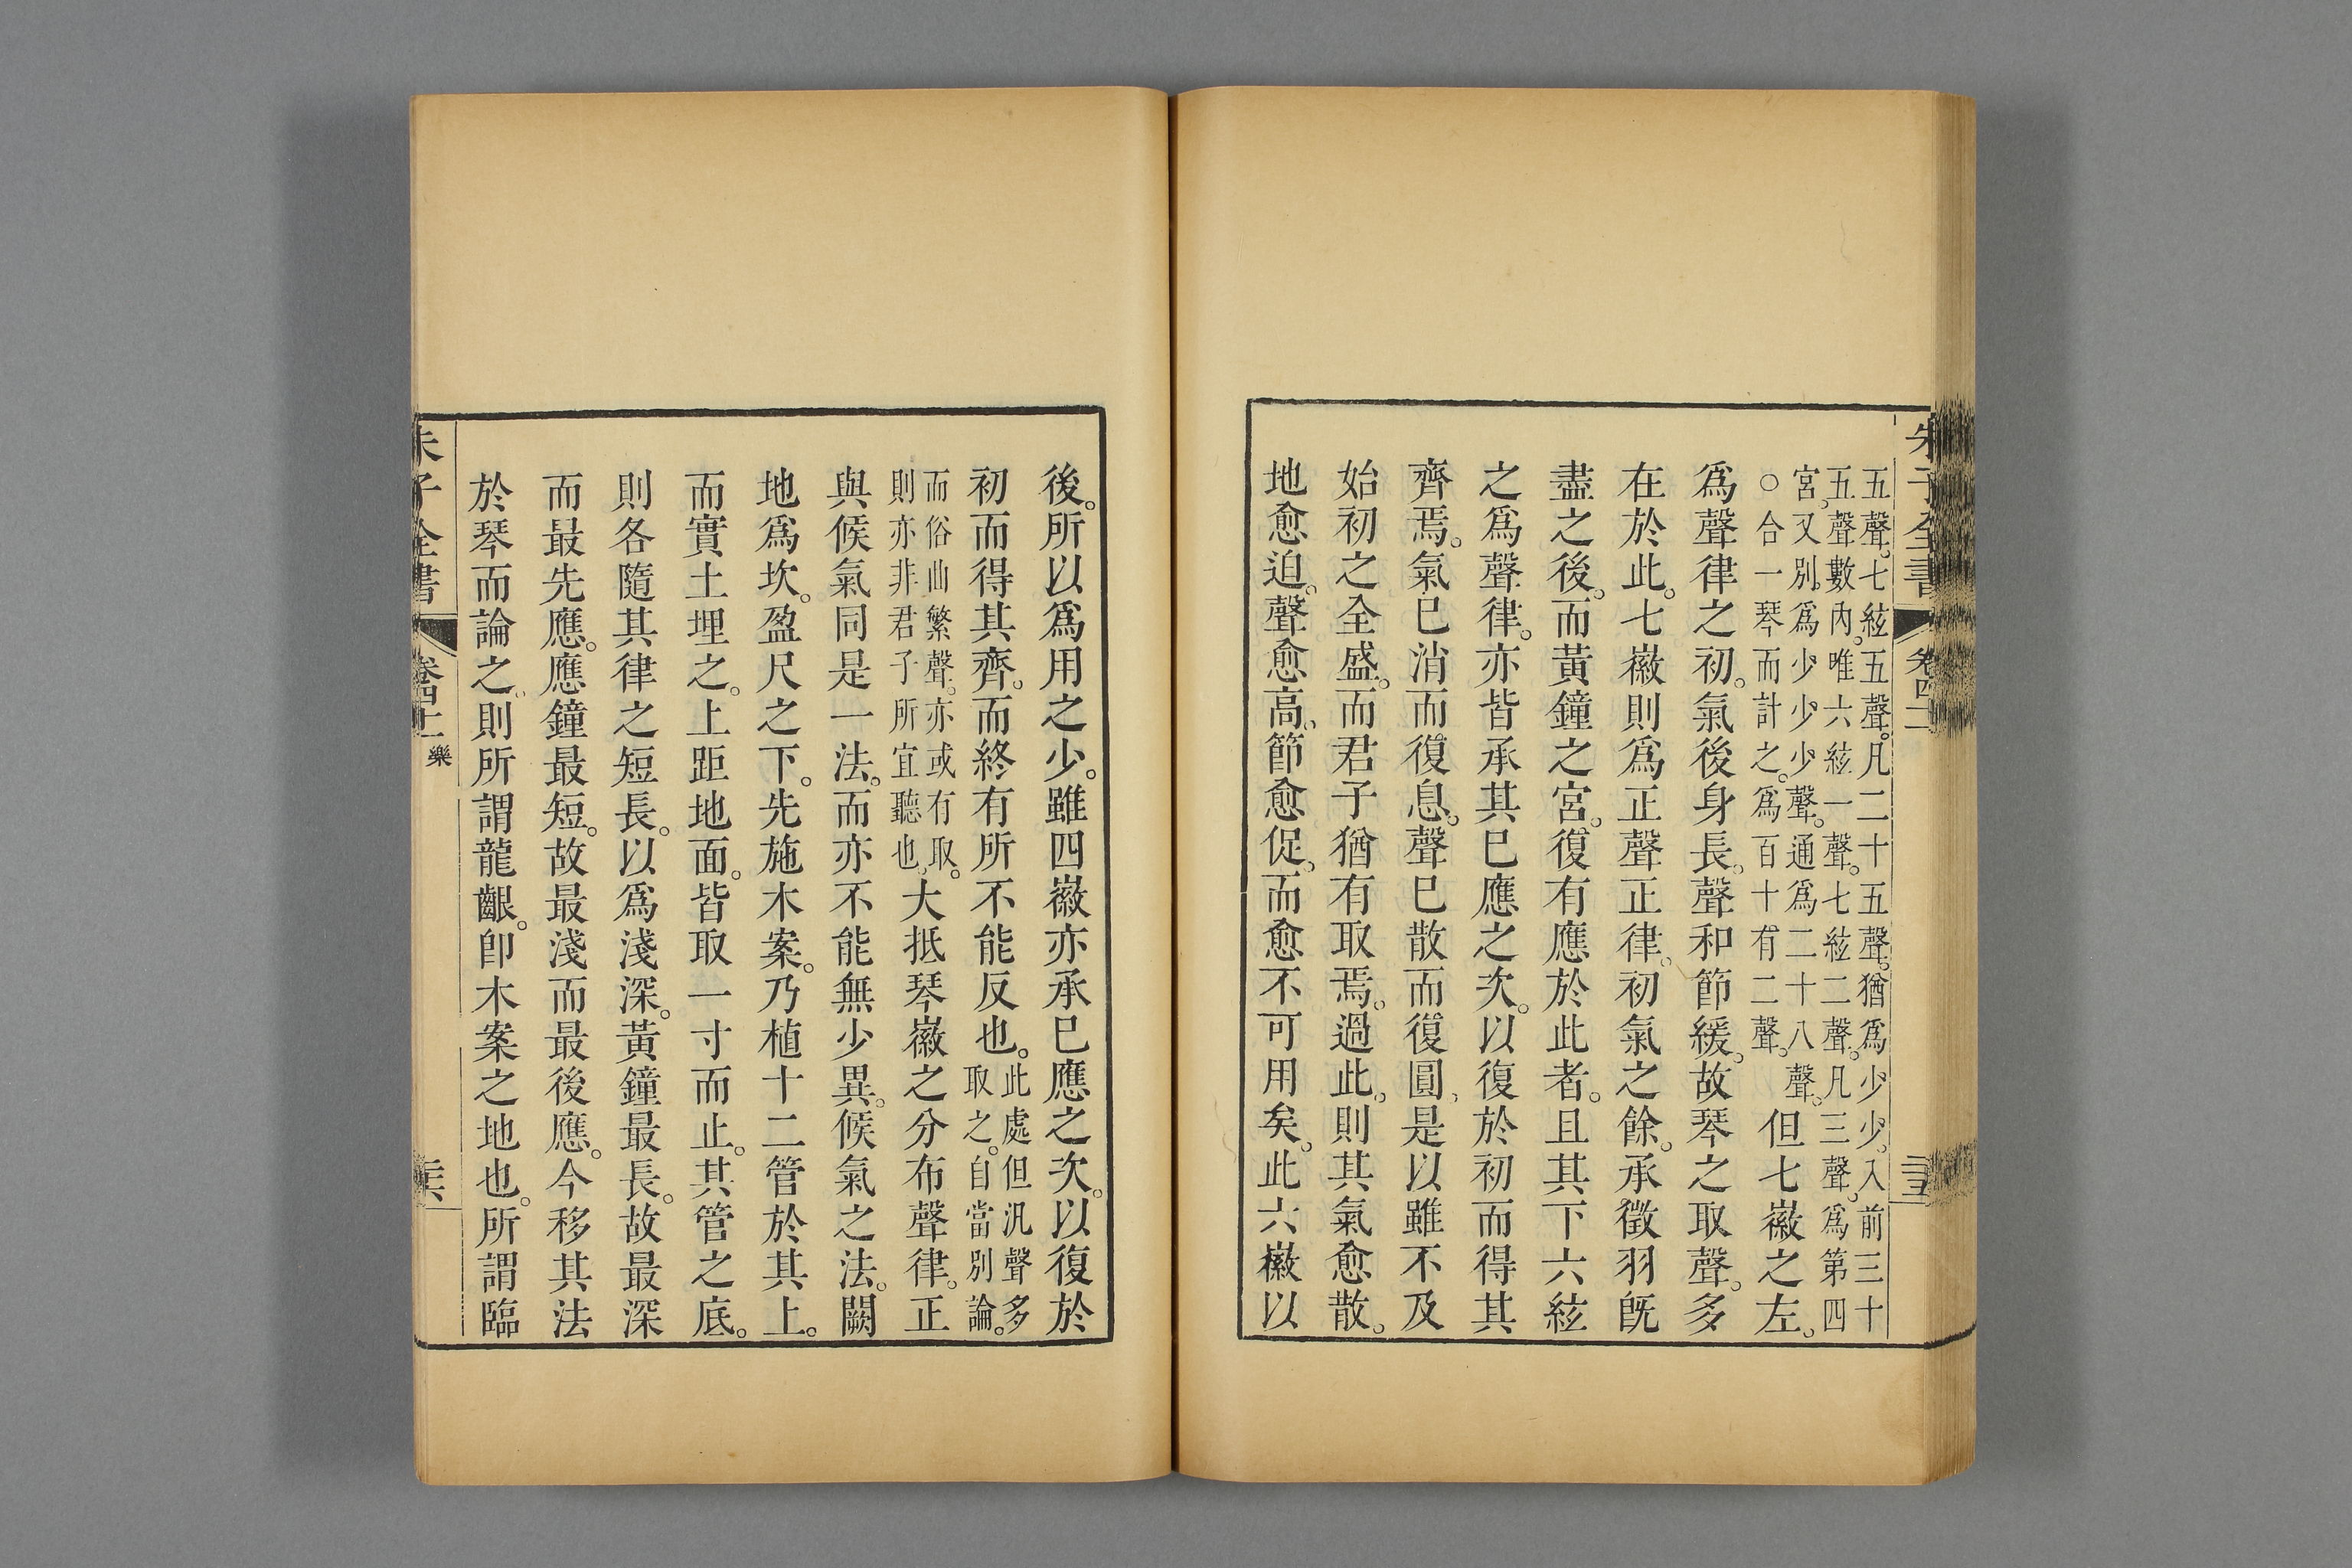 五聲。七絃五聲。凡二十五聲。猶爲少少。入前三十
五聲數內。唯六絃一聲。七絃二聲。凡三聲。爲第四
宮。又別爲少少少聲。通爲二十八聲。
○合一琴而計之。爲百十有二聲。
但七徽之左。
爲聲律之初。氣後身長。聲和節緩。故琴之取聲。多
在於此。七徽則爲正聲正律。初氣之餘。承徵羽旣
盡之後。而黃鐘之宮。復有應於此者。且其下六絃
之爲聲律。亦皆承其已應之次。以復於初而得其
齊焉。氣已消而復息。聲已散而復圓。是以雖不及
始初之全盛。而君子猶有取焉。過此。則其氣愈散。
地愈迫。聲愈高。節愈促。而愈不可用矣。此六徽以
朱子全書
卷四十一 樂
後。所以爲用之少。雖四徽亦承已應之次。以復於
初而得其齊。而終有所不能反也。
此處但汎聲多
取之。自當別論。
而俗曲繁聲。亦或有取。
則亦非君子所宜聽也。
大抵琴徽之分布聲律。正
與候氣同是一法。而亦不能無少異。候氣之法。闕
地爲坎。盈尺之下。先施木案。乃植十二管於其上。
而實土埋之。上距地面。皆取一寸而止。其管之底。
則各隨其律之短長。以爲淺深。黃鐘最長。故最深
而最先應。應鐘最短。故最淺而最後應。今移其法
於琴而論之。則所謂龍齦。卽木案之地也。所謂臨